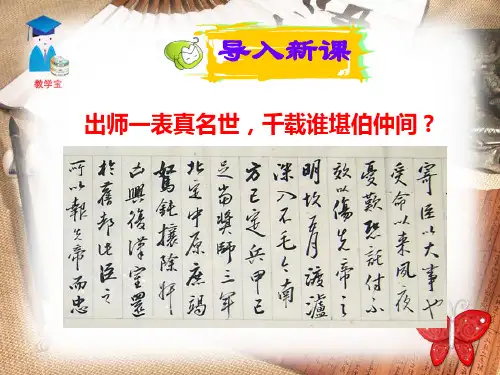 教学宝
导入新课
出师一表真名世，千载谁堪伯仲间？
寄臣以大事也
受命以来夙夜
憂歎恐託付不
效以傷先帝之
明故五月渡瀘
深入不毛今南
方已定兵甲已
足當獎帥三軍
北定中原庶竭
駑鈍攘除奸
凶興復漢室還
於舊都此臣之
所以報先帝而忠